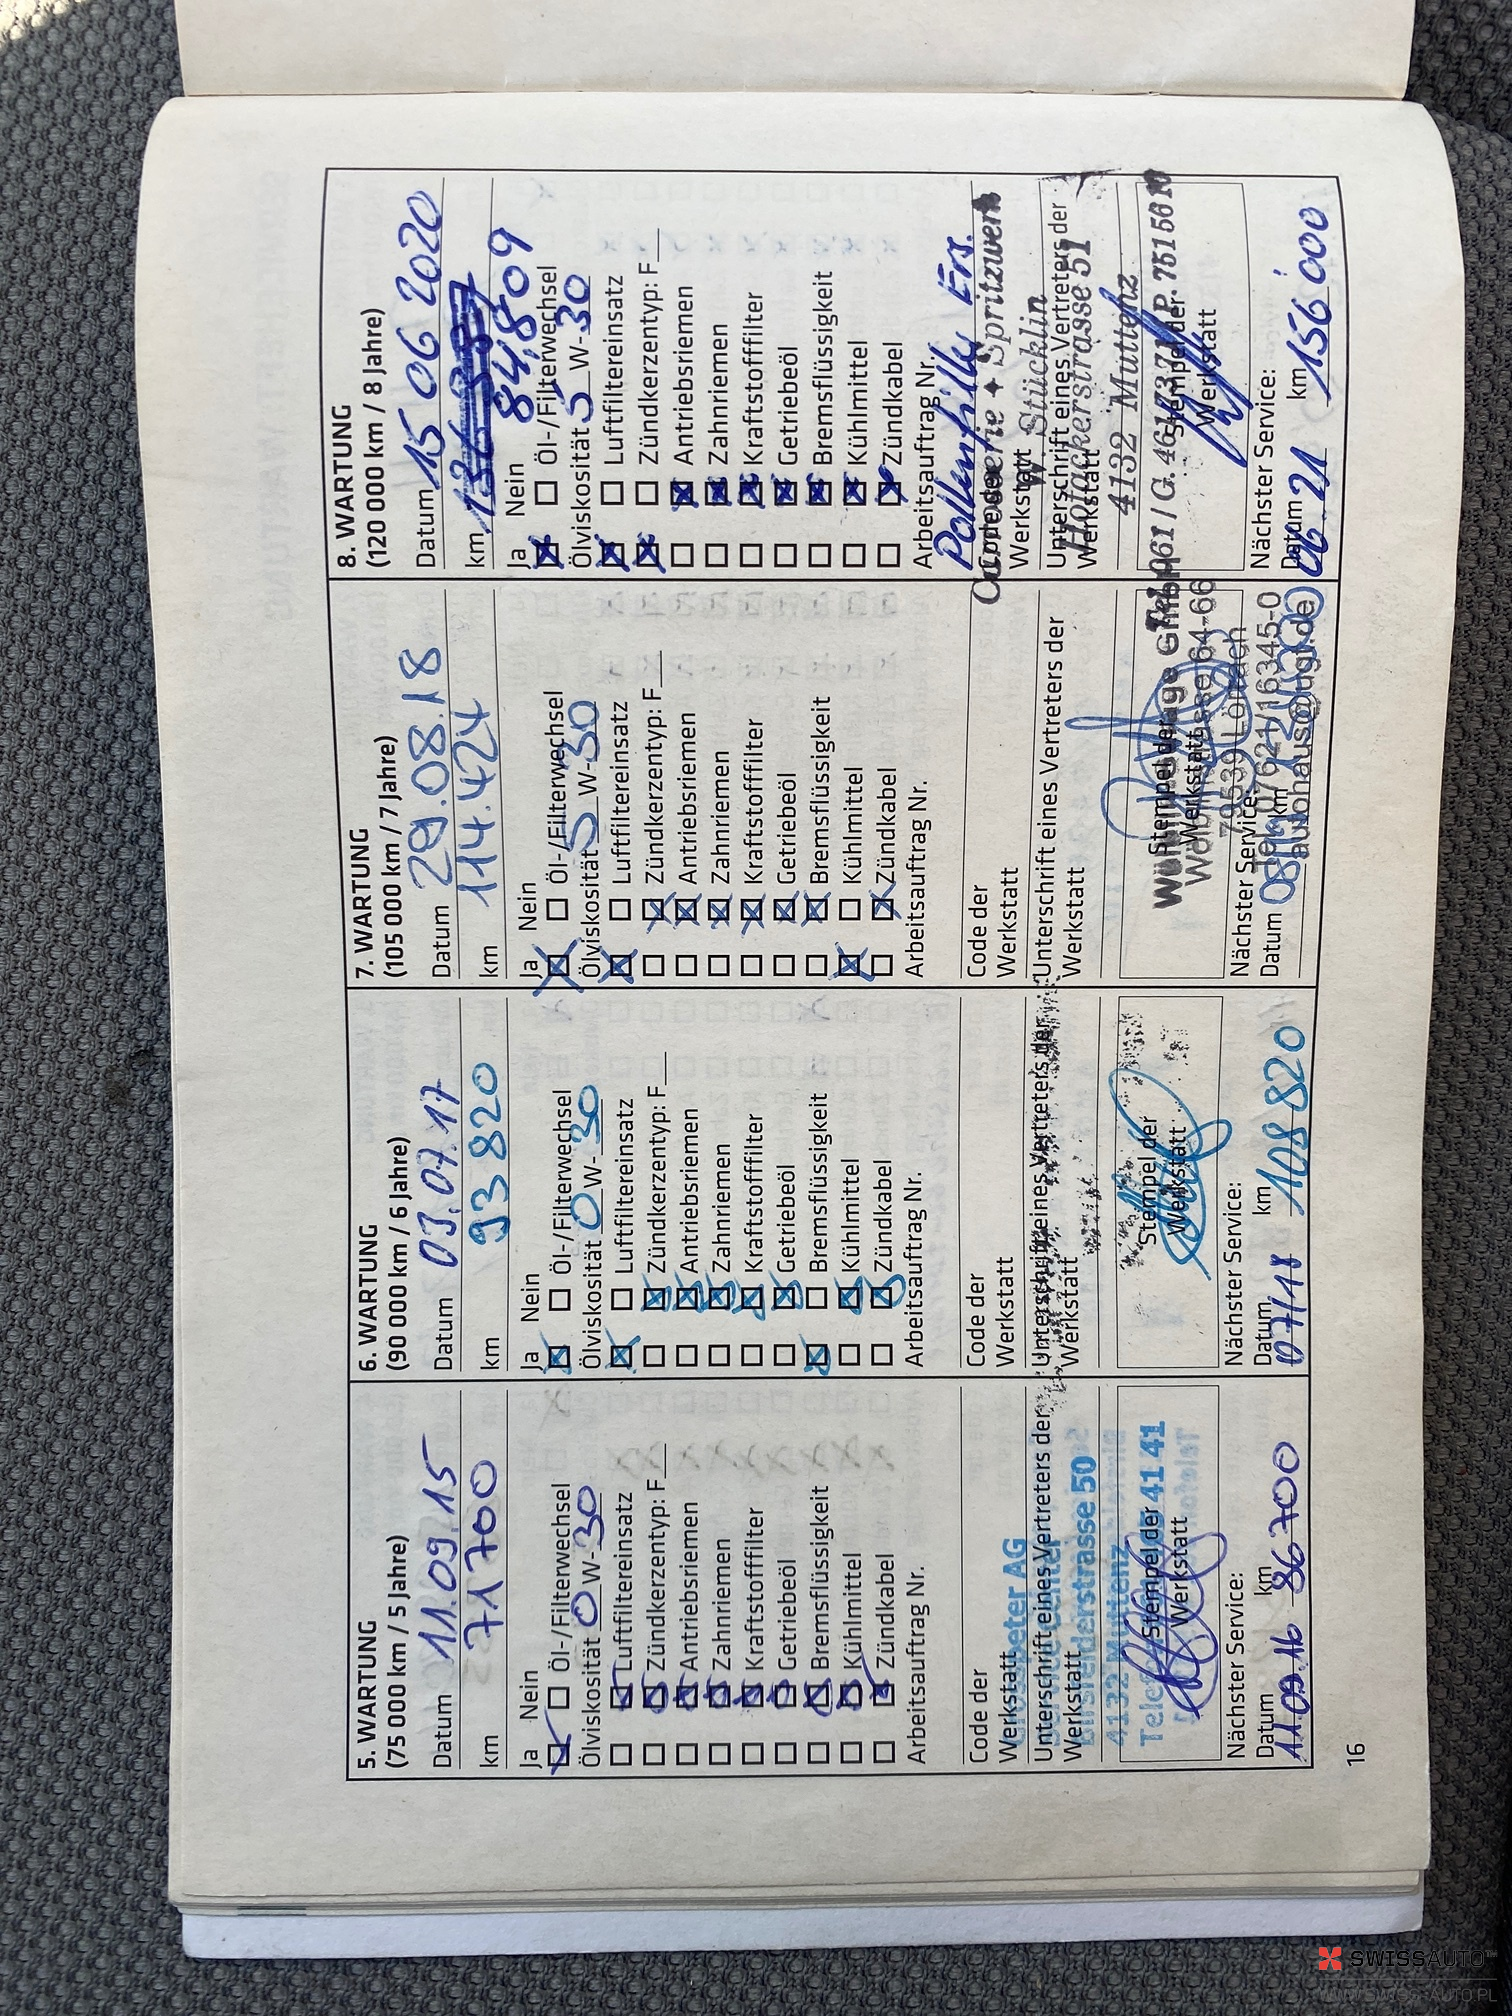 5. WARTUNG
(75 000 km / 5 Jahre)
Datum 11.09.15
km 71700
Ja Nein
Öl-/Filterwechsel
Ölviskosität 0 W-30
Luftfiltereinsatz
Zündkerzentyp: F
Antriebsriemen
Zahnriemen
Kraftstofffilter
Getriebeöl
Bremsflüssigkeit
Kühlmittel
Zündkabel
Arbeitsauftrag Nr.
Code der
Werkstatt
AG
Unterschrift eines Vertreters der
Werkstatt
Birsfelderstrasse 50
4132 Muttenz
Stempel der
Werkstatt
41 41
Nächster Service:
Datum km
11.09.16 86700
6. WARTUNG
(90 000 km / 6 Jahre)
Datum 03.07.17
km 93820
Ja Nein
Öl-/Filterwechsel
Ölviskosität 0 W-30
Luftfiltereinsatz
Zündkerzentyp: F
Antriebsriemen
Zahnriemen
Kraftstofffilter
Getriebeöl
Bremsflüssigkeit
Kühlmittel
Zündkabel
Arbeitsauftrag Nr.
Code der
Werkstatt
Unterschrift eines Vertreters der
Werkstatt
Stempel der
Werkstatt
Nächster Service:
Datum km
07/18 108 820
7. WARTUNG
(105 000 km / 7 Jahre)
Datum 29.08.18
km 114.424
Ja Nein
Öl-/Filterwechsel
Ölviskosität 5 W-30
Luftfiltereinsatz
Zündkerzentyp: F
Antriebsriemen
Zahnriemen
Kraftstofffilter
Getriebeöl
Bremsflüssigkeit
Kühlmittel
Zündkabel
Arbeitsauftrag Nr.
Code der
Werkstatt
Unterschrift eines Vertreters der
Werkstatt
Stempel der
Werkstatt
GmbH
64-66
79539 Lörrach
Tel. 07621/16345-0
Nächster Service:
Datum km
8. WARTUNG
(120 000 km / 8 Jahre)
Datum 15 06 2020
km 84,809
Ja Nein
Öl-/Filterwechsel
Ölviskosität 5 W-30
Luftfiltereinsatz
Zündkerzentyp: F
Antriebsriemen
Zahnriemen
Kraftstofffilter
Getriebeöl
Bremsflüssigkeit
Kühlmittel
Zündkabel
Arbeitsauftrag Nr.
Pollenfilter Ers.
Code der
Werkstatt
Carrosserie + Spritzwerk
W. Stücklin
Unterschrift eines Vertreters der
Werkstatt
Hofackerstrasse 51
4132 Muttenz
Tel. 061 / G. 461 73 71 P. 751 56 10
Stempel der
Werkstatt
Nächster Service:
Datum km
06 21 156'000
16
SWISSAUTO
WWW.SWISS-AUTO.PL